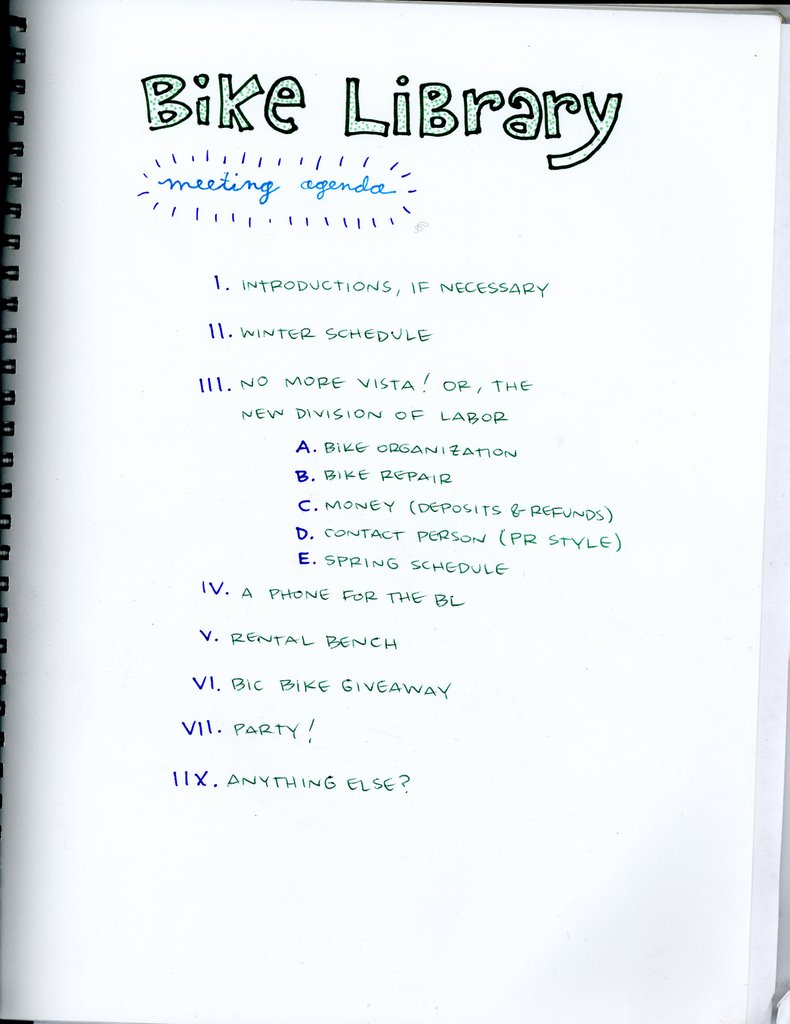 Bike Library
meeting agenda
I. INTRODUCTIONS, IF NECESSARY
II. WINTER SCHEDULE
III. NO MORE VISTA! OR, THE
NEW DIVISION OF LABOR
A. BIKE ORGANIZATION
B. BIKE REPAIR
C. MONEY (DEPOSITS & REFUNDS)
D. CONTACT PERSON (PR STYLE)
E. SPRING SCHEDULE
IV. A PHONE FOR THE BL
V. RENTAL BENCH
VI. BIC BIKE GIVEAWAY
VII. PARTY!
IIX. ANYTHING ELSE?